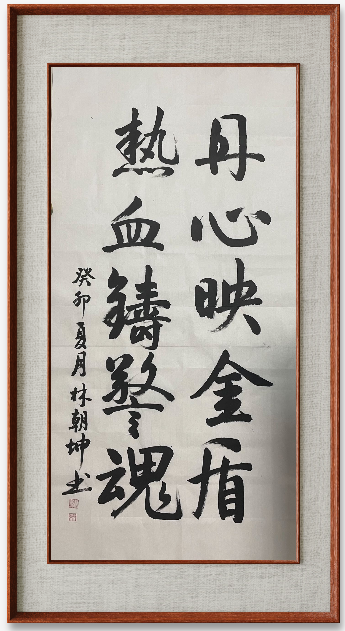 丹心映金盾
熱血鑄警魂
癸卯夏月林朝坤书